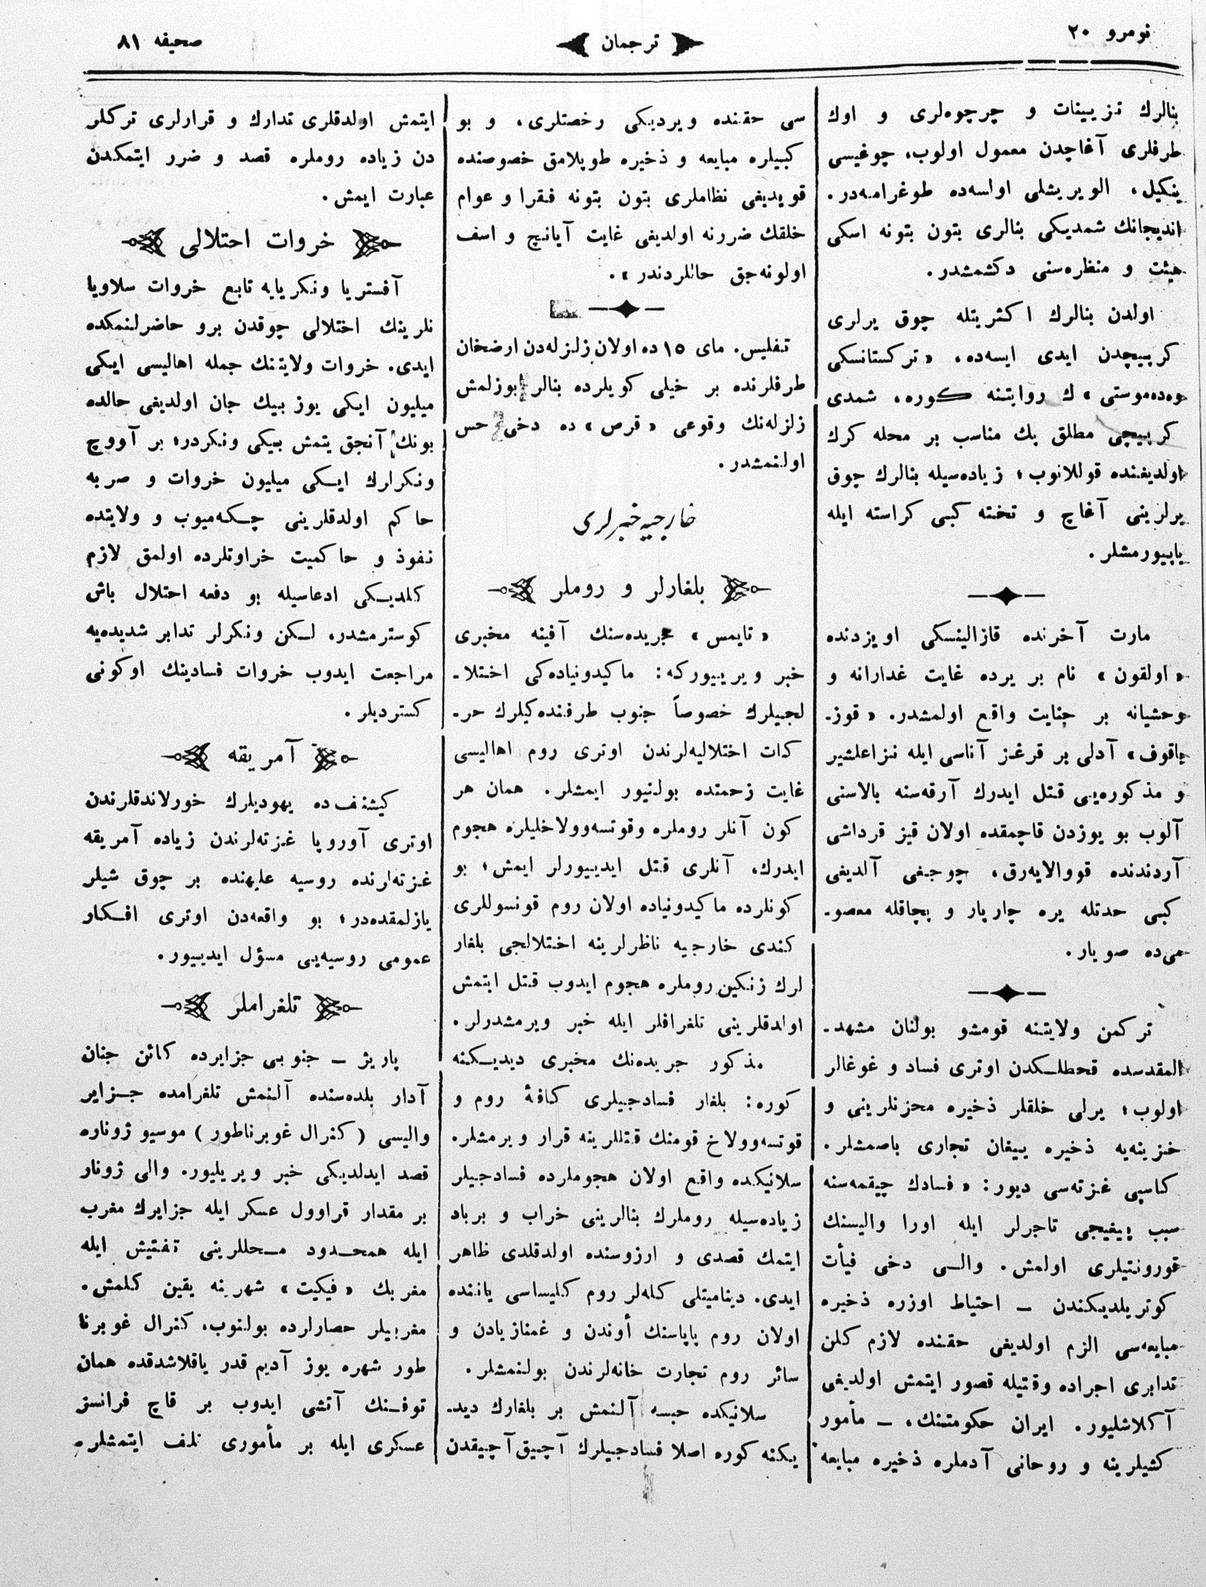 نومرو ٢٠
ترجمان
صحيفه ٨١
بنالرك تزيينات و چرچوه‌لرى و اوك
طرفلرى آغاچدن معمول اولوب، چوغيسى
ينكيل، الويريشلى اولسه‌ده طوغرامه‌در.
انديجانك شمديكى بنالرى بتون بتونه اسكى
هيئت و منظره‌سنى دكشمشدر.
اولدن بنالرك اكثريتله چوق يرلرى
كرپيچدن ايدى ايسه‌ده، «تركستانسكى
وه‌ده‌موستى» ك روايتنه كوره، شمدى
كرپيچى مطلق بك مناسب بر محله كرك
اولديغنده قوللانوب؛ زياده‌سيله بنالرك چوق
يرلرينى آغاچ و تخته كبى كراسته ايله
ياپيورمشلر.
مارت آخرنده قازالينسكى اويزدنده
«اولقون» نام بر يرده غايت غدارانه و
وحشيانه بر جنايت واقع اولمشدر. «قوز-
باقوف» آدلى بر قرغز آناسى ايله نزاعلشير
و مذكوره‌يى قتل ايدرك آرقه‌سنه بالاسنى
آلوب بو يوزدن قاچمقده اولان قيز قرداشى
آردندنده قووالايه‌رق، چوجغى آلديغى
كبى حدتله يره چارپار و بچاقله معصو-
مى‌ده صويار.
تركمن ولايتنه قومشو بولنان مشهد-
المقدسده قحطلكدن اوترى فساد و غوغالر
اولوب؛ يرلى خلقلر ذخيره محزنلرينى و
خزينه‌يه ذخيره ييغان تجارى باصمشلر.
كاسپى غزته‌سى ديور: «فسادك چيقمه‌سنه
سبب ييغيجى تاجرلر ايله اورا واليسنك
قورونتيلرى اولمش. والى دخى فيأت
كوتريلديكندن — احتياط اوزره ذخيره
مبايعه‌سى الزم اولديغى حقنده لازم كلن
تدابرى اجراده وقتيله قصور ايتمش اولديغى
آكلاشليور. ايران حكومتنك، — مأمور
كشيلرينه و روحانى آدملره ذخيره مبايعه
سى حقنده ويرديكى رخصتلرى، و بو
كبيلره مبايعه و ذخيره طوپلامق خصوصنده
قويديغى نظاملرى بتون بتونه فقرا و عوام
خلقك ضررنه اولديغى غايت آيانچ و اسف
اولونه‌جق حاللردندر».
تفليس. ماى ١٥ ده اولان زلزله‌دن ارضخان
طرفلرنده بر خيلى كويلرده بنالر بوزلمش
زلزله‌نك وقوعى «قرص» ده دخى حس
اولنمشدر.
خارجيه خبرلرى
بلغارلر و روملر
«تايمس» جريده‌سنك آفينه مخبرى
خبر ويرييوركه: ماكيدونياده‌كى اختلا-
لجيلرك خصوصاً جنوب طرفنده‌كيلرك حر-
كات اختلاليه‌لرندن اوترى روم اهاليسى
غايت زحمتده بولنيور ايمشلر. همان هر
كون آنلر روملره وقوتسه‌وولاخليلره هجوم
ايدرك، آنلرى قتل ايدييورلر ايمش؛ بو
كونلرده ماكيدونياده اولان روم قونسوللرى
كندى خارجيه ناظرلرينه اختلالجى بلغار
لرك زنكين روملره هجوم ايدوب قتل ايتمش
اولدقلرينى تلغرافلر ايله خبر ويرمشدرلر.
مذكور جريده‌نك مخبرى ديديكنه
كوره: بلغار فسادجيلرى كافۀ روم و
قوتسه‌وولاخ قومنك قتللرينه قرار ويرمشلر.
سلانيكده واقع اولان هجوملرده فسادجيلر
زياده‌سيله روملرك بنالرينى خراب و برباد
ايتمك قصدى و ارزوسنده اولدقلدى ظاهر
ايدى. ديناميتلى كله‌لر روم كليساسى ياننده
اولان روم پاپاسنك أوندن و غمنازيادن و
سائر روم تجارت خانه‌لرندن بولنمشلر.
سلانيكده حبسه آلنمش بر بلغارك ديد-
يكنه كوره اصلا فسادجيلرك آچيق آچيقدن
ايتمش اولدقلرى تدارك و قرارلرى تركلر
دن زياده روملره قصد و ضرر ايتمكدن
عبارت ايمش.
خروات احتلالى
آفستريا ونكريايه تابع خروات سلاويا
نلرينك اختلالى چوقدن برو حاضرلنمكده
ايدى. خروات ولايتنك جمله اهاليسى ايكى
ميليون ايكى يوز بيك جان اولديغى حالده
بونك آنجق يتمش بيكى ونكردر؛ بر آووچ
ونكرلرك ايكى ميليون خروات و صربه
حاكم اولدقلرينى چكه‌ميوب و ولايتده
نفوذ و حاكميت خراوتلرده اولمق لازم
كلديكى ادعاسيله بو دفعه احتلال باش
كوسترمشدر، لكن ونكرلر تدابر شديده‌يه
مراجعت ايدوب خروات فسادينك اوكونى
كسترديلر.
آمريقه
كيشنفده يهوديلرك خورلاندقلرندن
اوترى آوروپا غزته‌لرندن زياده آمريقه
غزته‌لرنده روسيه عليهنده بر چوق شيلر
يازلمقده‌در؛ بو واقعه‌دن اوترى افكار
عمومى روسيه‌يى مسؤل ايدييور.
تلغراملر
پاريژ — جنوبى جزايرده كائن جنان
آدار بلده‌سنده آلنمش تلغرامده جزاير
واليسى (كنرال غوبرناطور) موسيو ژوناره
قصد ايدلديكى خبر ويريليور. والى ژونار
بر مقدار قراوول عسكر ايله جزايرك مغرب
ايله همحدود محللرينى تفتيش ايله
مغربك «فيكيت» شهرينه يقين كلمش.
مغربيلر حصارلرده بولنوب، كنرال غوبرنا
طور شهره يوز آديم قدر ياقلاشدقده همان
توفنك آتشى ايدوب بر قاچ فرانسز
عسكرى ايله بر مأمورى تلف ايتمشلر.